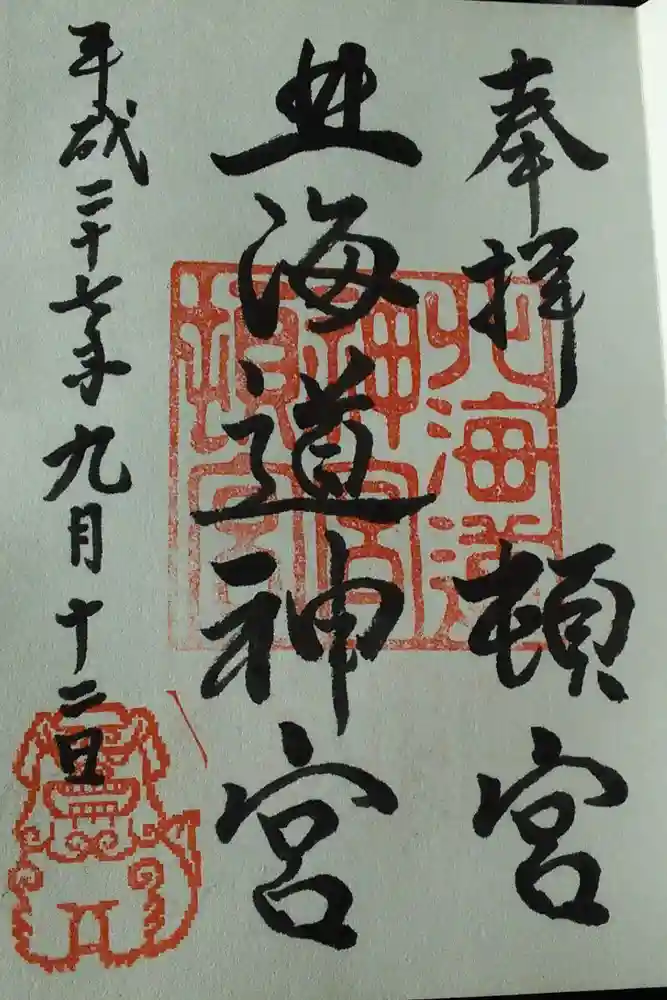 奉拝 頓宮
北海道神宮
平成二十七年九月十二日
北海道
神宮
頓宮